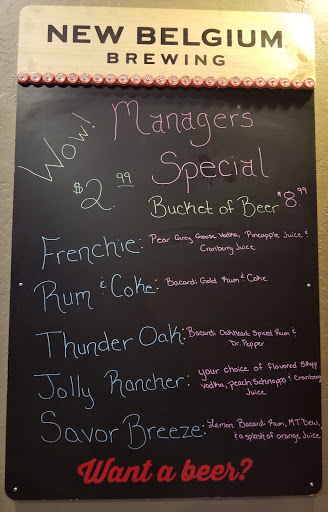 NEW BELGIUM
BREWING
Wow!
Manager's
Special
$2.99
Bucket of Beer $8.99
Frenchie: Pear Grey Goose Vodka, Pineapple Juice &
Cranberry Juice
Rum & Coke: Bacardi Gold Rum & Coke
Thunder Oak: Bacardi Oakheart Spiced Rum &
Dr. Pepper
Jolly Rancher: your choice of flavored
vodka, peach schnapps & cranberry
Juice
Savor Breeze: Lemon Bacardi Rum, MT. Dew,
& a splash of orange Juice
Want a beer?